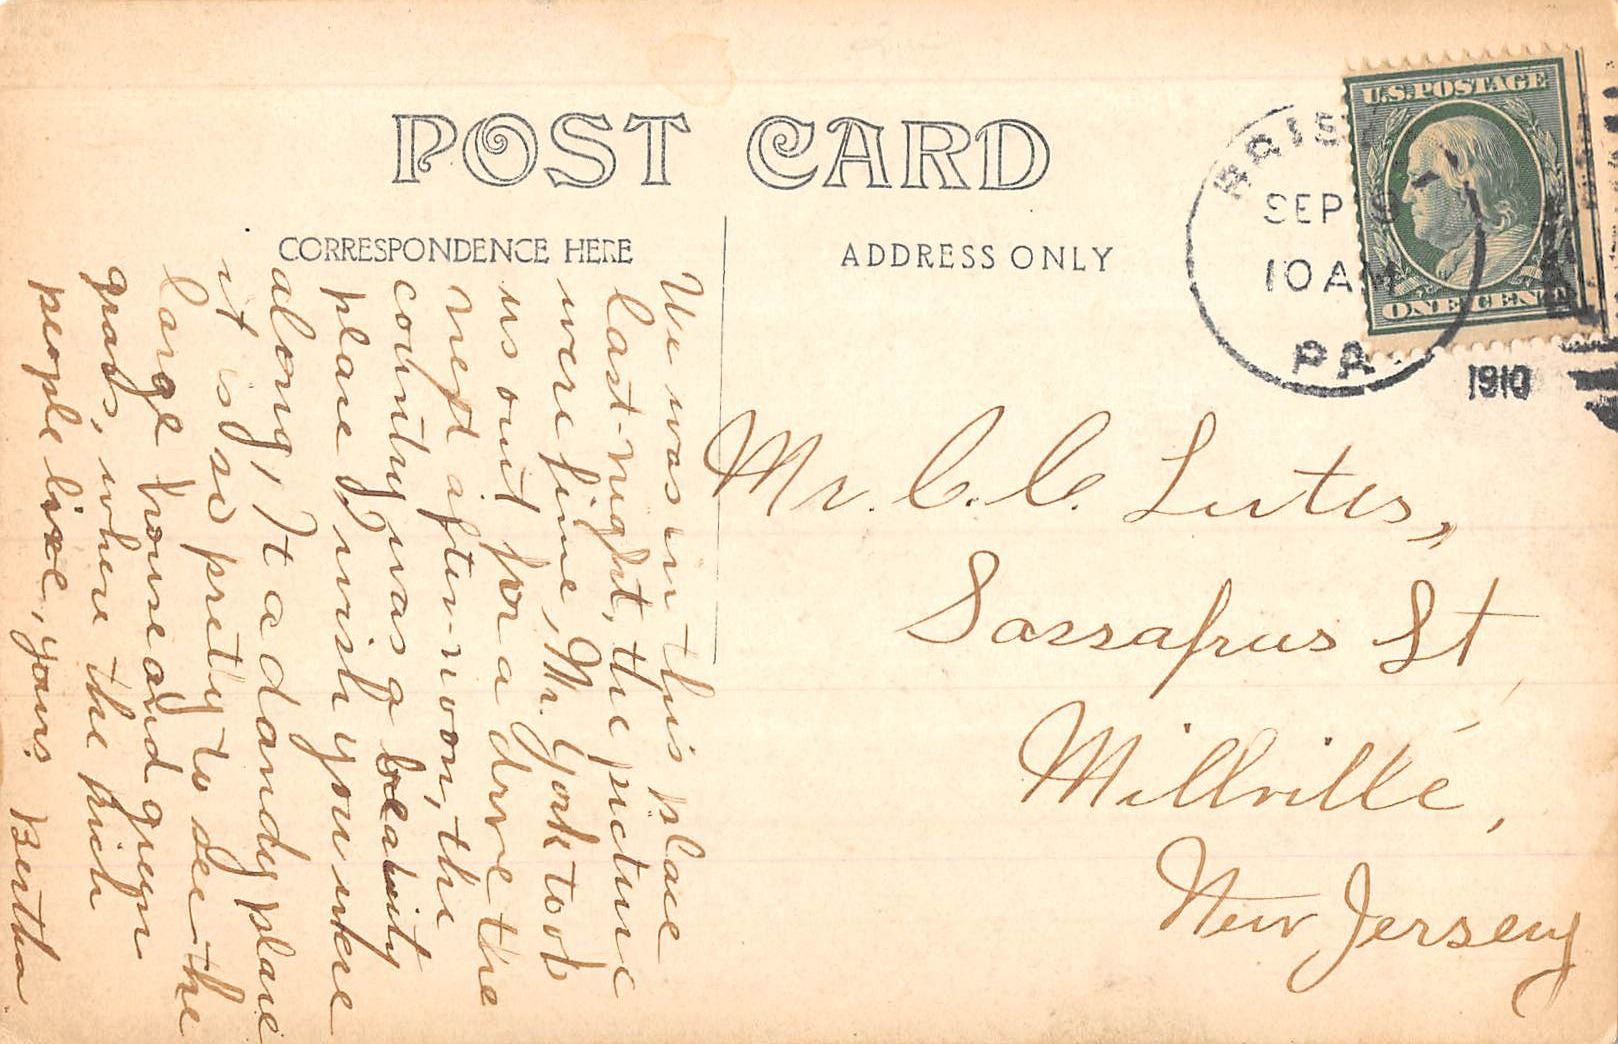 POST CARD
CORRESPONDENCE HERE
ADDRESS ONLY
U.S. POSTAGE
ONE CENT
SEP
10 AM
PA
1910
We was in this place
last night, the picture
were fine, Mr. York took
us out for a drive the
next after-noon, the
country was a beauity
place I wish you were
along, It a dandy place
it is so pretty to see the
large house and green
grass, where the rich
people live, yours Bertha
Mr. C. C. Lutes,
Sassafrus St,
Millville,
New Jersey